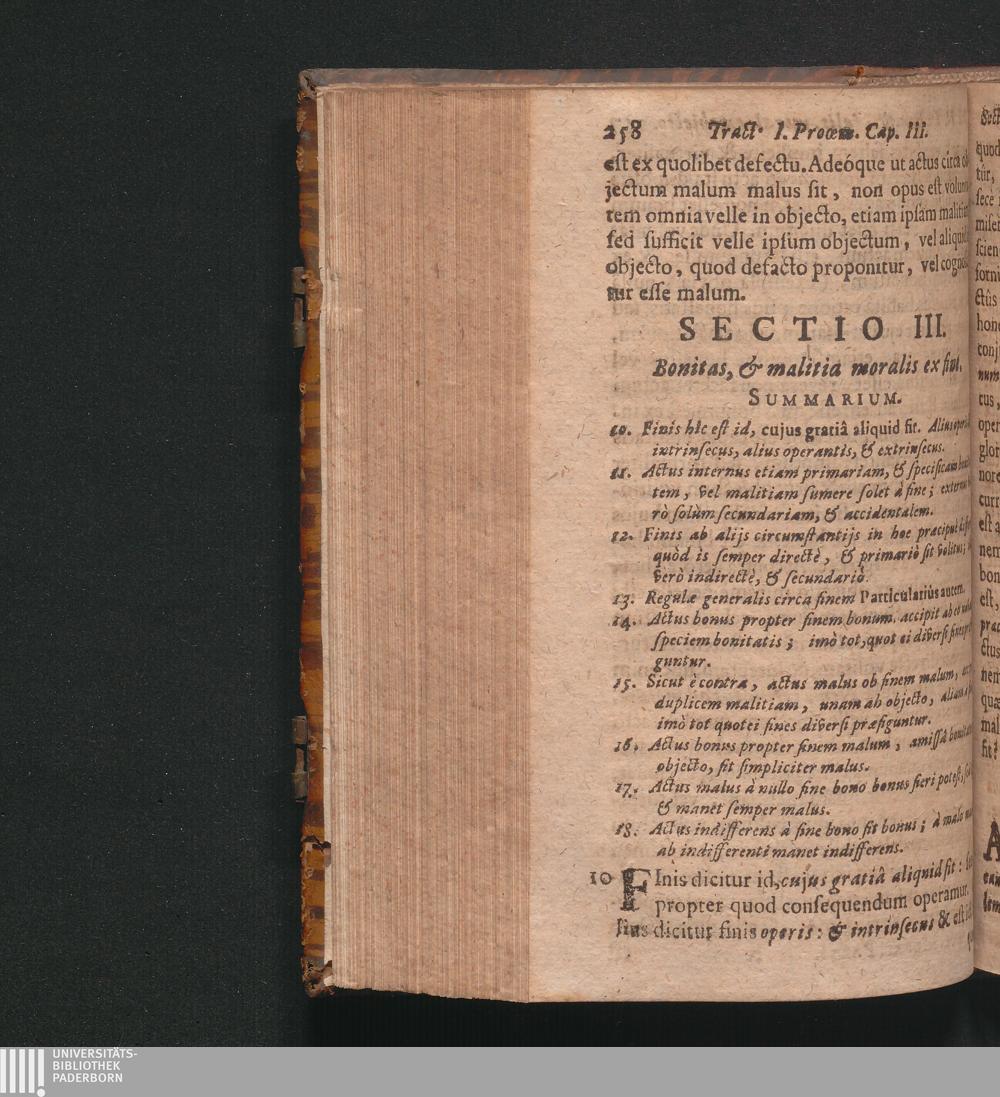 258 Tract. I. Prooem. Cap. III.
est ex quolibet defectu. Adeóque ut actus circa
jectum malum malus sit, non opus est
tem omnia velle in objecto, etiam ipsam
sed sufficit velle ipsum objectum, vel
objecto, quod defacto proponitur, vel
tur esse malum.
SECTIO III.
Bonitas, & malitia moralis ex
SUMMARIUM.
10. Finis hîc est id, cujus gratiâ aliquid fit. Alius
intrinsecus, alius operantis, & extrinsecus.
11. Actus internus etiam primariam, &
tem, vel malitiam sumere solet à fine;
rò solùm secundariam, & accidentalem.
12. Finis ab alijs circumstantijs in hoc
quòd is semper directè, & primariò sit volitus;
verò indirectè, & secundariò.
13. Regulæ generalis circa finem Particulariùs autem.
14. Actus bonus propter finem bonum, accipit ab eo
speciem bonitatis; imò tot, quot ei diversi
guntur.
15. Sicut è contra, actus malus ob finem malum,
duplicem malitiam, unam ab objecto,
imò tot quot ei fines diversi præfiguntur.
16. Actus bonus propter finem malum, amissâ
objecto, fit simpliciter malus.
17. Actus malus à nullo fine bono bonus fieri potest,
& manet semper malus.
18. Actus indifferens à fine bono fit bonus; à malo
ab indifferenti manet indifferens.
10 FInis dicitur id, cujus gratiâ aliquid fit:
propter quod consequendum operamur.
lius dicitur finis operis: & intrinsecus & est
quod
tur,
fecè
scien
forni
ctûs
hone
conj
num
cus,
oper
glor
nore
curr
est
nem
bon
est,
prac
ctus
nem
quæ
mal
sit?
A
UNIVERSITÄTS-
BIBLIOTHEK
PADERBORN